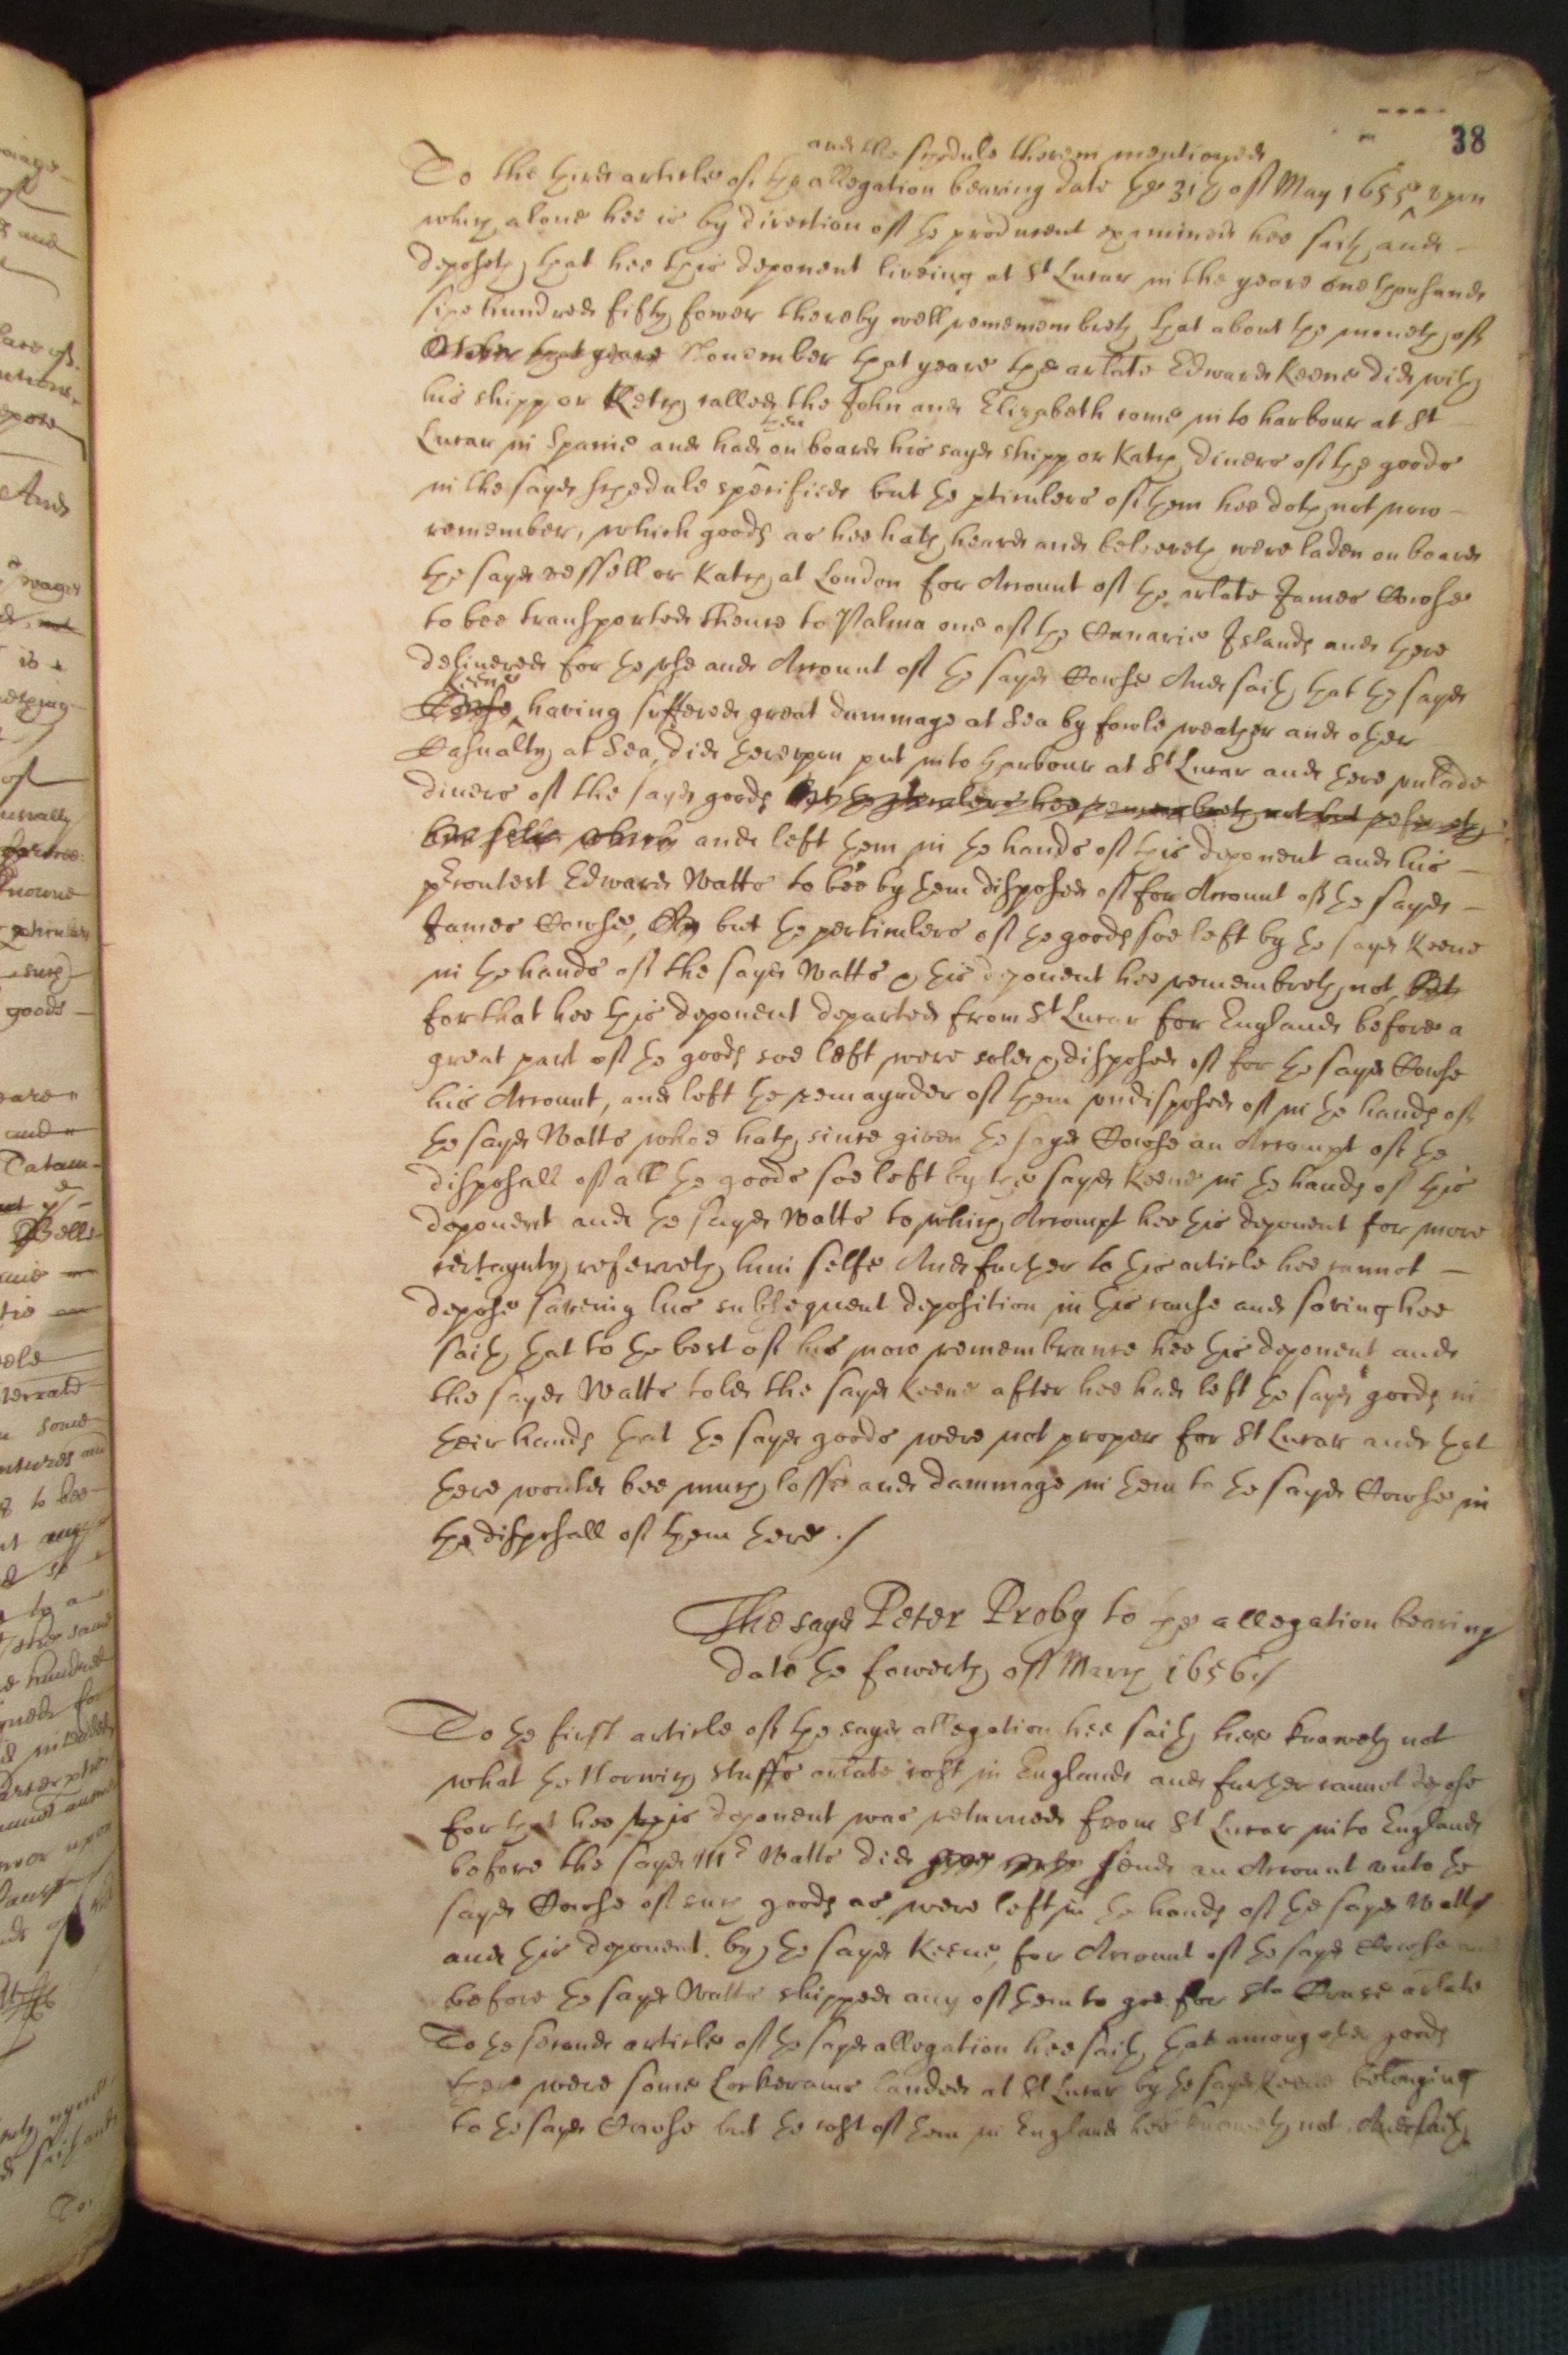 38
and the schedule therein mentioned
To the third article of the allegation bearing date the 31th of May 1655 upon
which alone hee is by direction of the producent examined hee saith and
deposeth that hee this deponent liveing at St Lucar in the yeare one thousand
sixe hundred fifty fower thereby well rememembreth that about the moneth of
October that yeare November that yeare the arlate Edward Keene did with
his shipp or Ketch called the John and Elizabeth come into harbour at St
then
Lucar in Spaine and had on board his sayd shipp or Katch divers of the goods
in the sayd schedule specified but the pticulers of them hee doth not now
remember, which goods as hee hath heard and beleeveth were laden on board
the sayd vessell or Katch at London for Account of the arlate James Cowse
to bee transported thence to Palma one of the Canarie Islands and there
delivered for the use and Account of the sayd Cowse And saith that the sayd
Keene
Cowse having suffered great dammage at Sea by fowle weather and other
Casualty at Sea, did thereupon put into harbour at St Lucar and there unlade
divers of the sayd goods but the pticulers hee remembreth not but referreth
him selfe and left them in the hands of this deponent and his
Edward Watts to bee by them disposed of for Account of the sayd
James Cowse, but the perticulers of the goods soe left by the sayd Keene
in the hands of the sayd Watts & this deponent hee remembreth not, but
for that hee this deponent departed from St Lucar for England before a
great part of the goods soe left were sold & disposed of for the sayd Cowse
his Account, and left the remaynder of them undisposed of in the hands of
the sayd Watts whoe hath since given the sayd Cowse an Accompt of the
disposall of all the goods soe left by the sayd Keene in the hands of this
deponent and the sayd Watts to which Accompt hee this deponent for more
certaynty referreth him selfe And further to this article hee cannot
depose saveing his subsequent deposition in this cause and saving hee
saith that to the best of his now remembrance hee this deponent and
the sayd Watts told the sayd Keene after hee had left the sayd goods in
their hands that the sayd goods were not proper for St Lucar and that
there would bee much losse and dammage in them to the sayd Cowse in
the disposall of them there ./
The sayd Peter Proby to the allegation bearing
date the fowerth of March 1656./
To the first article of the sayd allegation hee saith hee knoweth not
what the Norwich stuffs arlate cost in England and further cannot depose
for that hee this deponent was returned from St Lucar into England
before the sayd Mr Watts did send an Account unto the
sayd Cowse of such goods as were left in the hands of the sayd Watts
and this deponent by the sayd Keene, for Account of the sayd Cowse and
before the sayd Watts shipped any of them to goe for Sta Cruse arlate
To the second article of the sayd allegation hee saith that among other goods
there were some Lockerams landed at St Lucar by the sayd Keene belonging
to the sayd Cowse but the cost of them in England hee knoweth not And saith